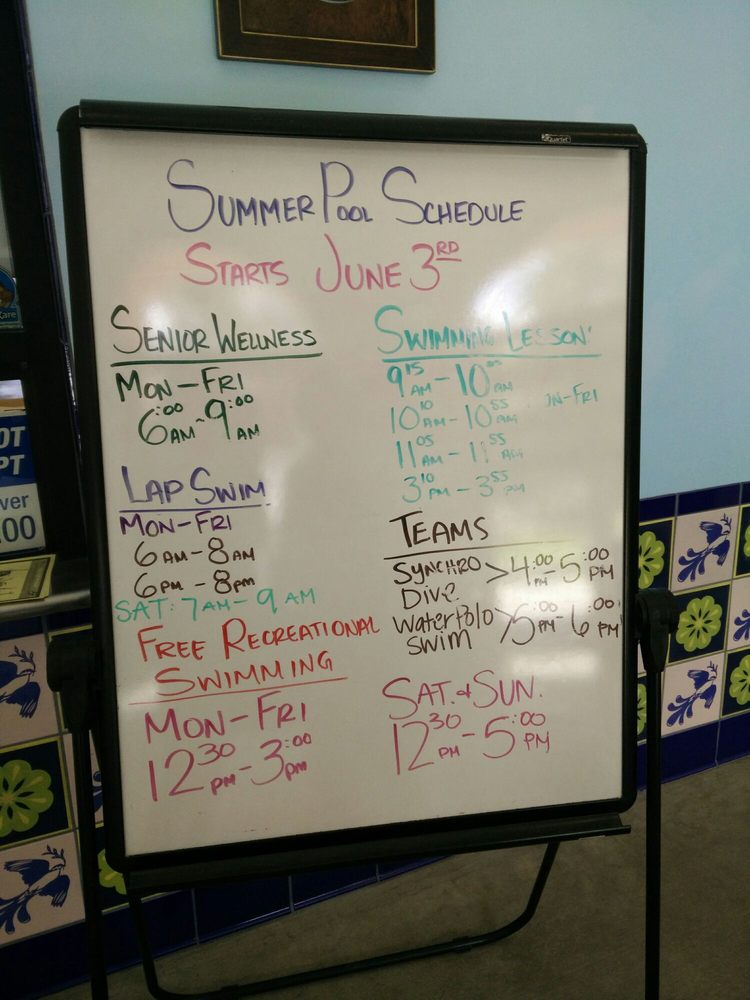 Quartet
SUMMER POOL SCHEDULE
STARTS JUNE 3RD
SENIOR WELLNESS
MON-FRI
6:00 AM - 9:00 AM
LAP SWIM
MON-FRI
6 AM - 8 AM
6 PM - 8 PM
SAT: 7 AM - 9 AM
FREE RECREATIONAL
SWIMMING
MON-FRI
12 30 PM - 3:00 PM
SWIMMING LESSON
9 15 AM - 10 AM
10 10 AM - 10 55 AM
11 05 AM - 11 55 AM
3 10 PM - 3 55 PM
ON-FRI
TEAMS
SYNCHRO
DIVE
> 4:00 PM - 5:00 PM
WATERPOLO
SWIM
> 5:00 PM - 6:00 PM
SAT. & SUN.
12 30 PM - 5:00 PM
OT
PT
ver
00